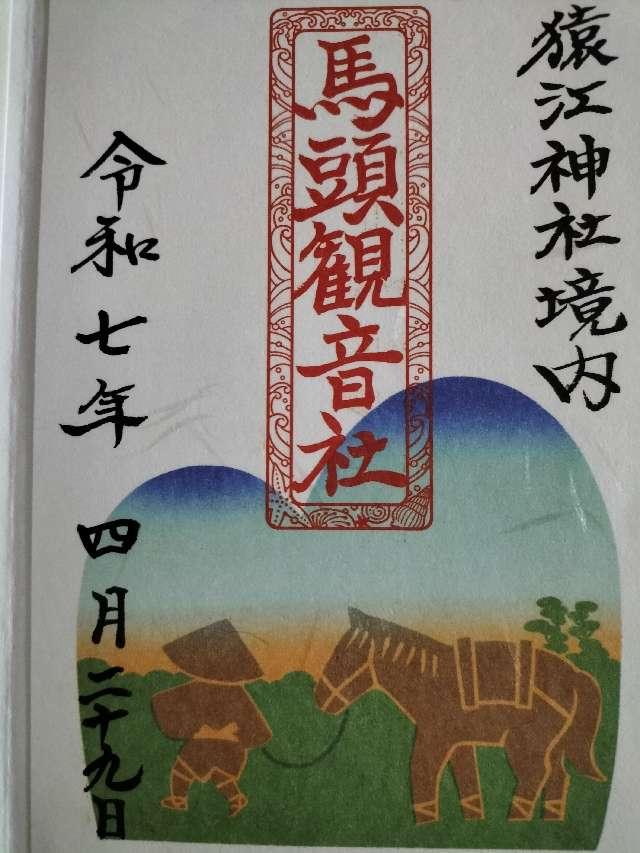 猿江神社境内
馬頭観音社
令和七年 四月二十九日